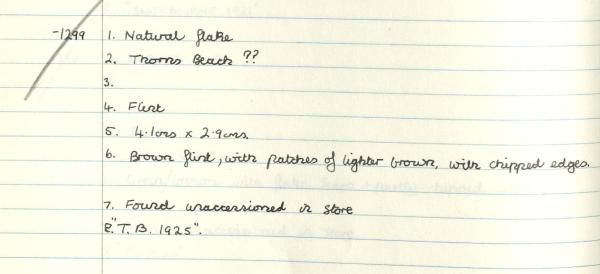 -1299 1. Natural flake
2. Thorns Beach ??
3.
4. Flint
5. 4.1cms x 2.9cms.
6. Brown flint, with patches of lighter brown, with chipped edges.
7. Found unaccessioned in store
8. "T.B. 1925".